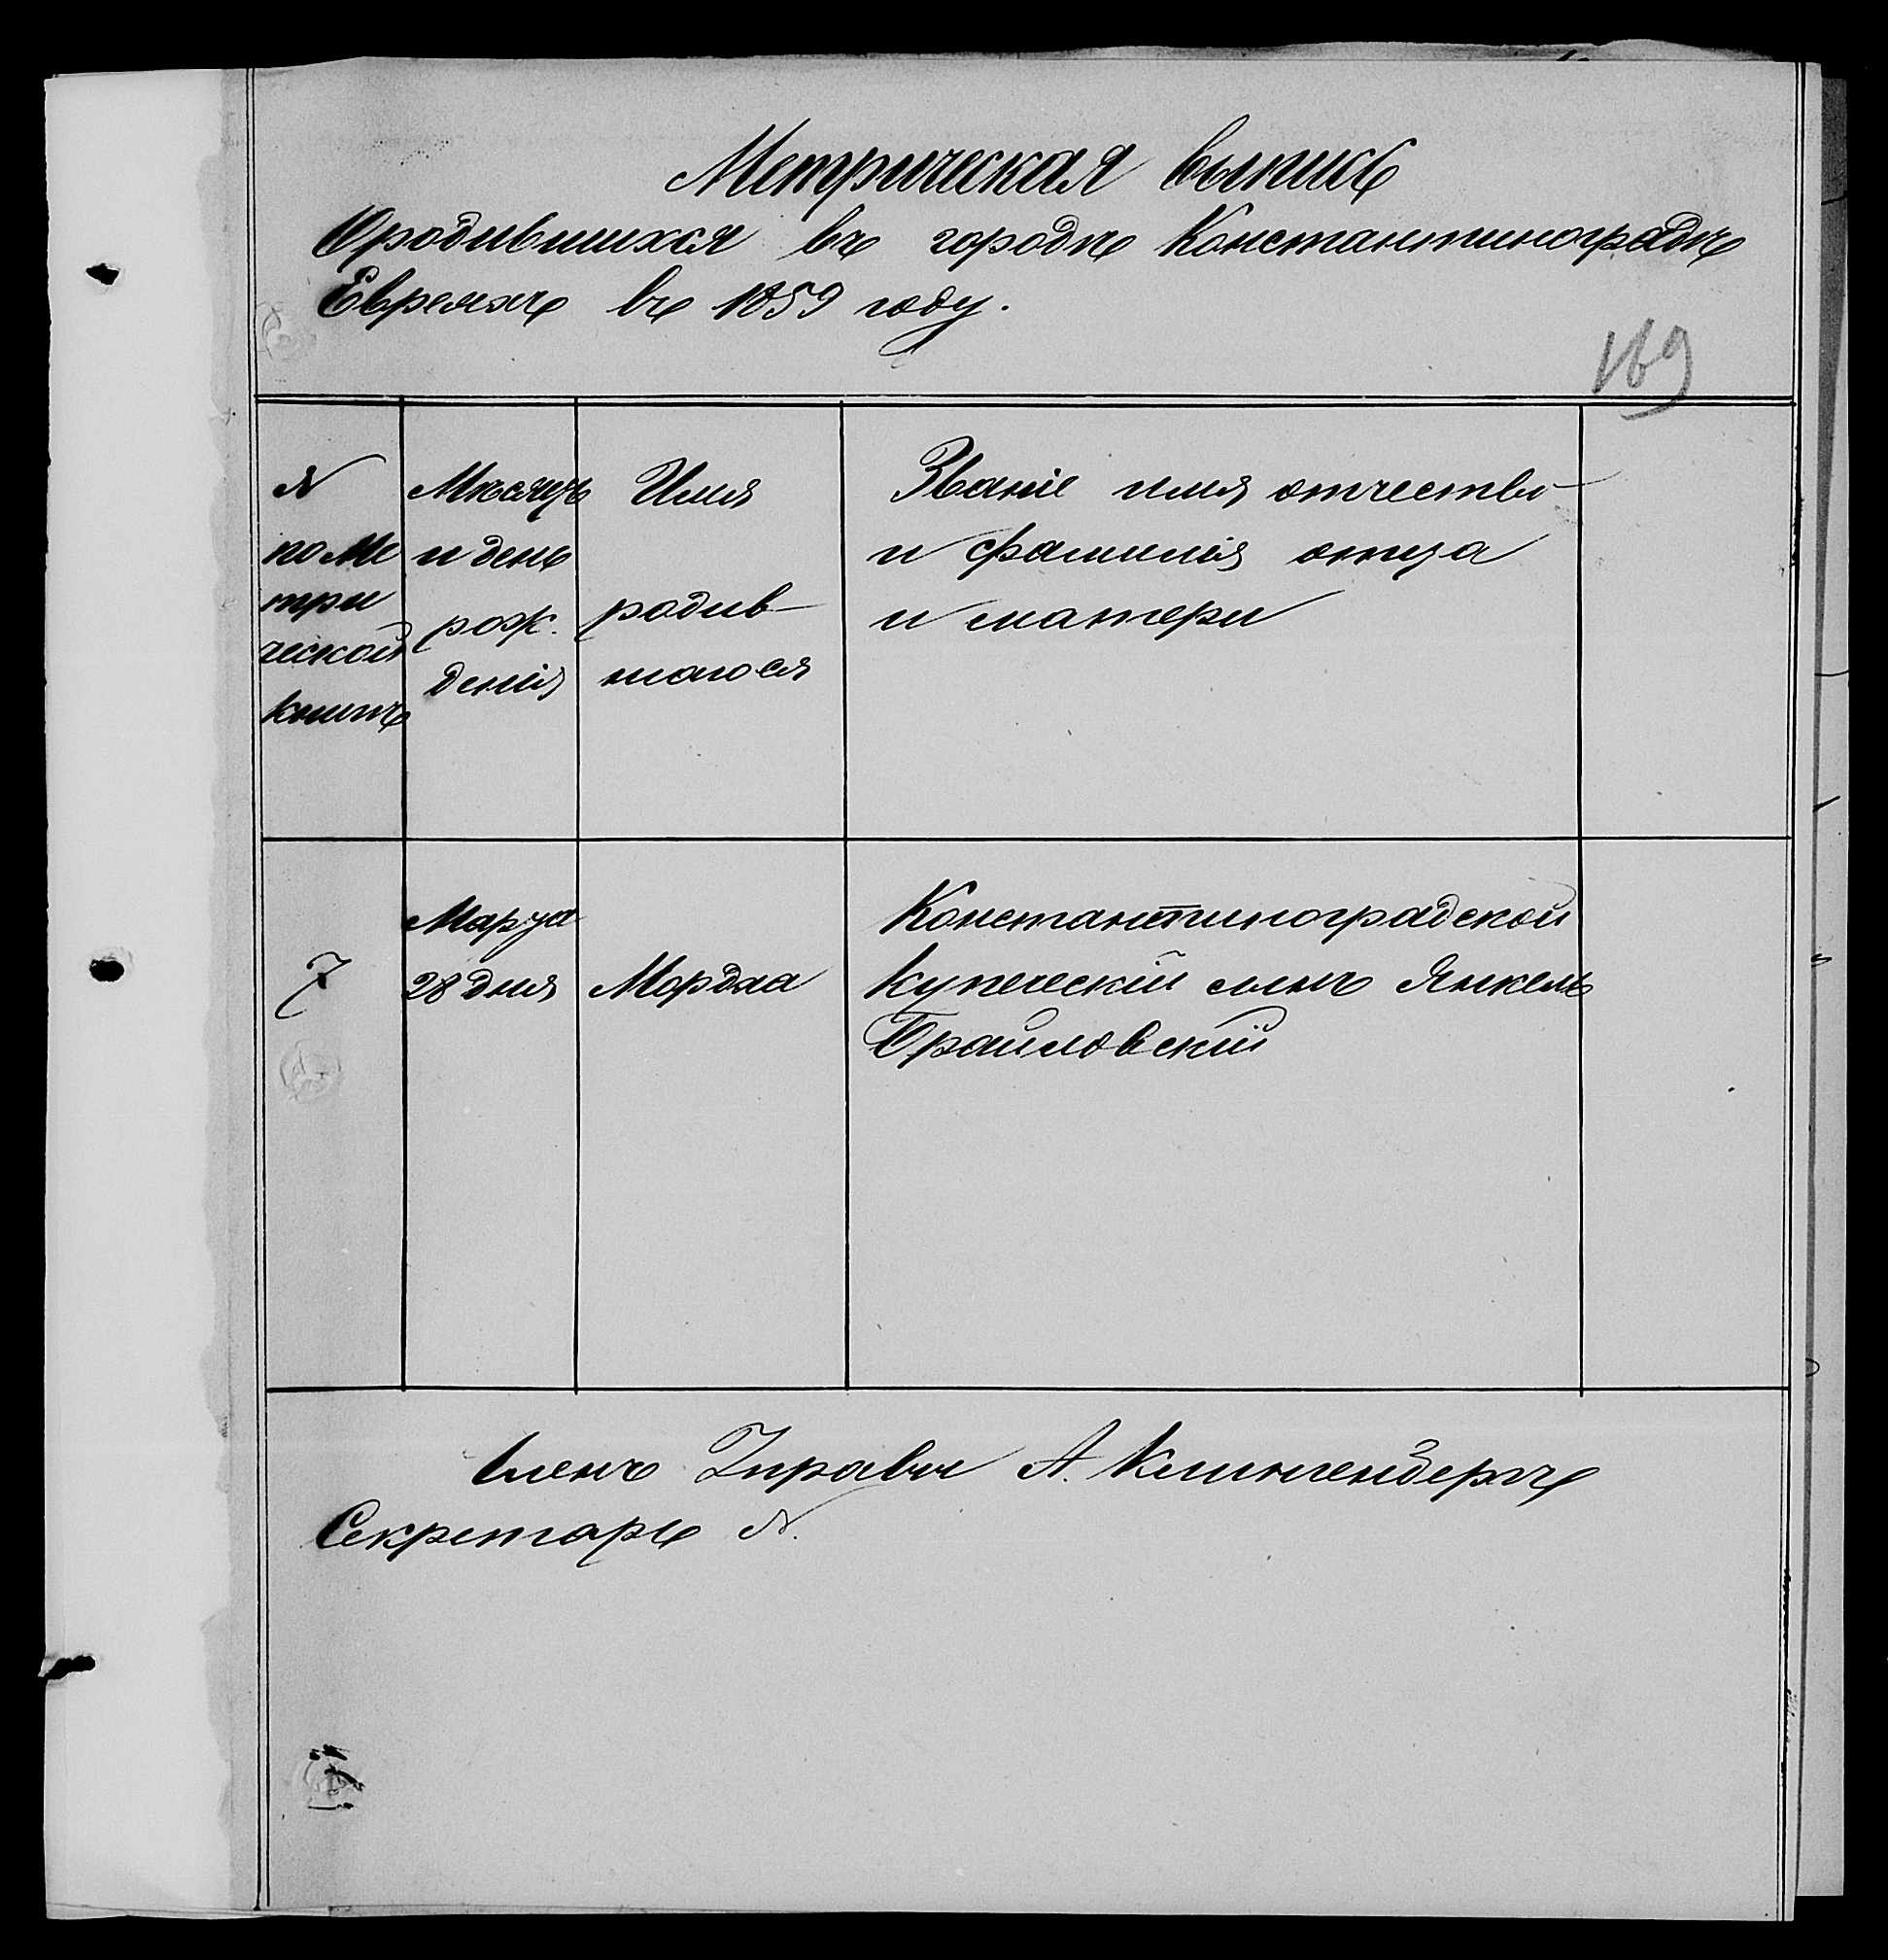 Метрическая выпись
О родившихся въ городѣ Константиноградѣ
Евреяхъ въ 1859 году.
169
№
по Ме
три
ческой
книгѣ
Мѣсяцъ
и день
рож.
денія
Имя
родив-
шагося
Званіе имя отчество
и фамилія отца
и матери
7
Марта
28 дня
Мордха
Константиноградской
купеческій сынъ Янкель
Браиловскій
Членъ Управы А. Клингенбергъ
Секретарь N.